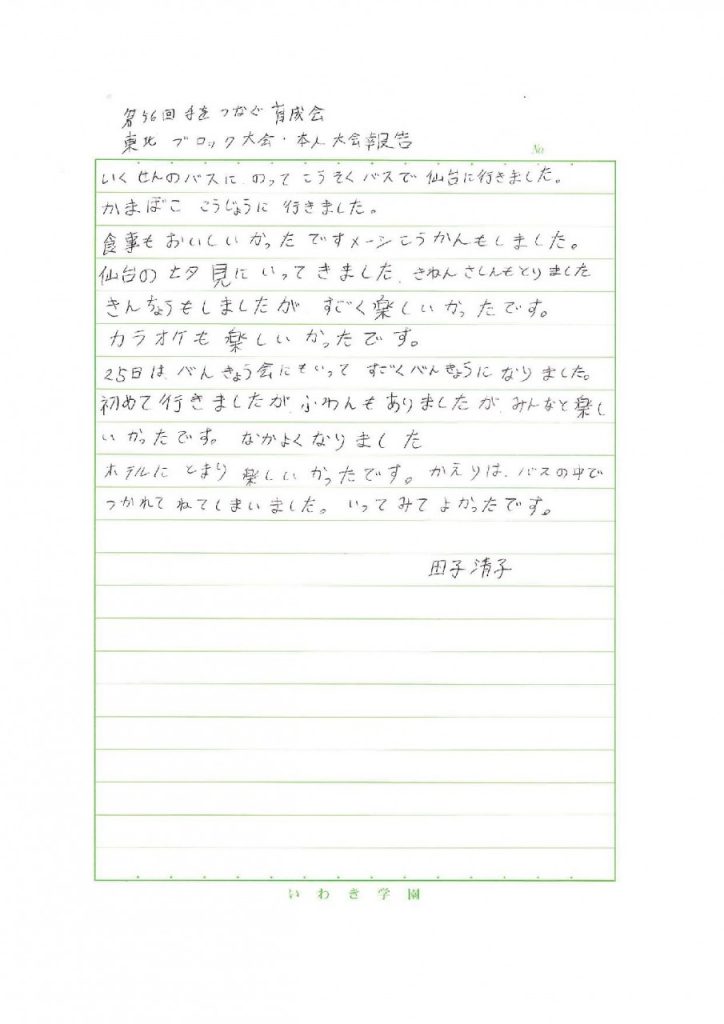 第56回手をつなぐ育成会
東北 ブロック大会・本人大会報告
No
いくせんのバスに、のって こうそくバスで 仙台に行きました。
かまぼこ こうじょうに 行きました。
食事も おいしいかったですメーシこうかんもしました。
仙台の七夕見にいってきました、きねんさしんもとりました
きんちょうもしましたが すごく楽しいかったです。
カラオケも 楽しいかったです。
25日は、べんきょう会にもいって すごくべんきょうになりました。
初めて行きましたが、ふわんもありましたが、みんなと楽し
いかったです。 なかよくなりました
ホテルに とまり 楽しいかったです。かえりは、バスの中で
つかれて ねてしまいました。いってみてよかったです。
田子清子
いわき学園